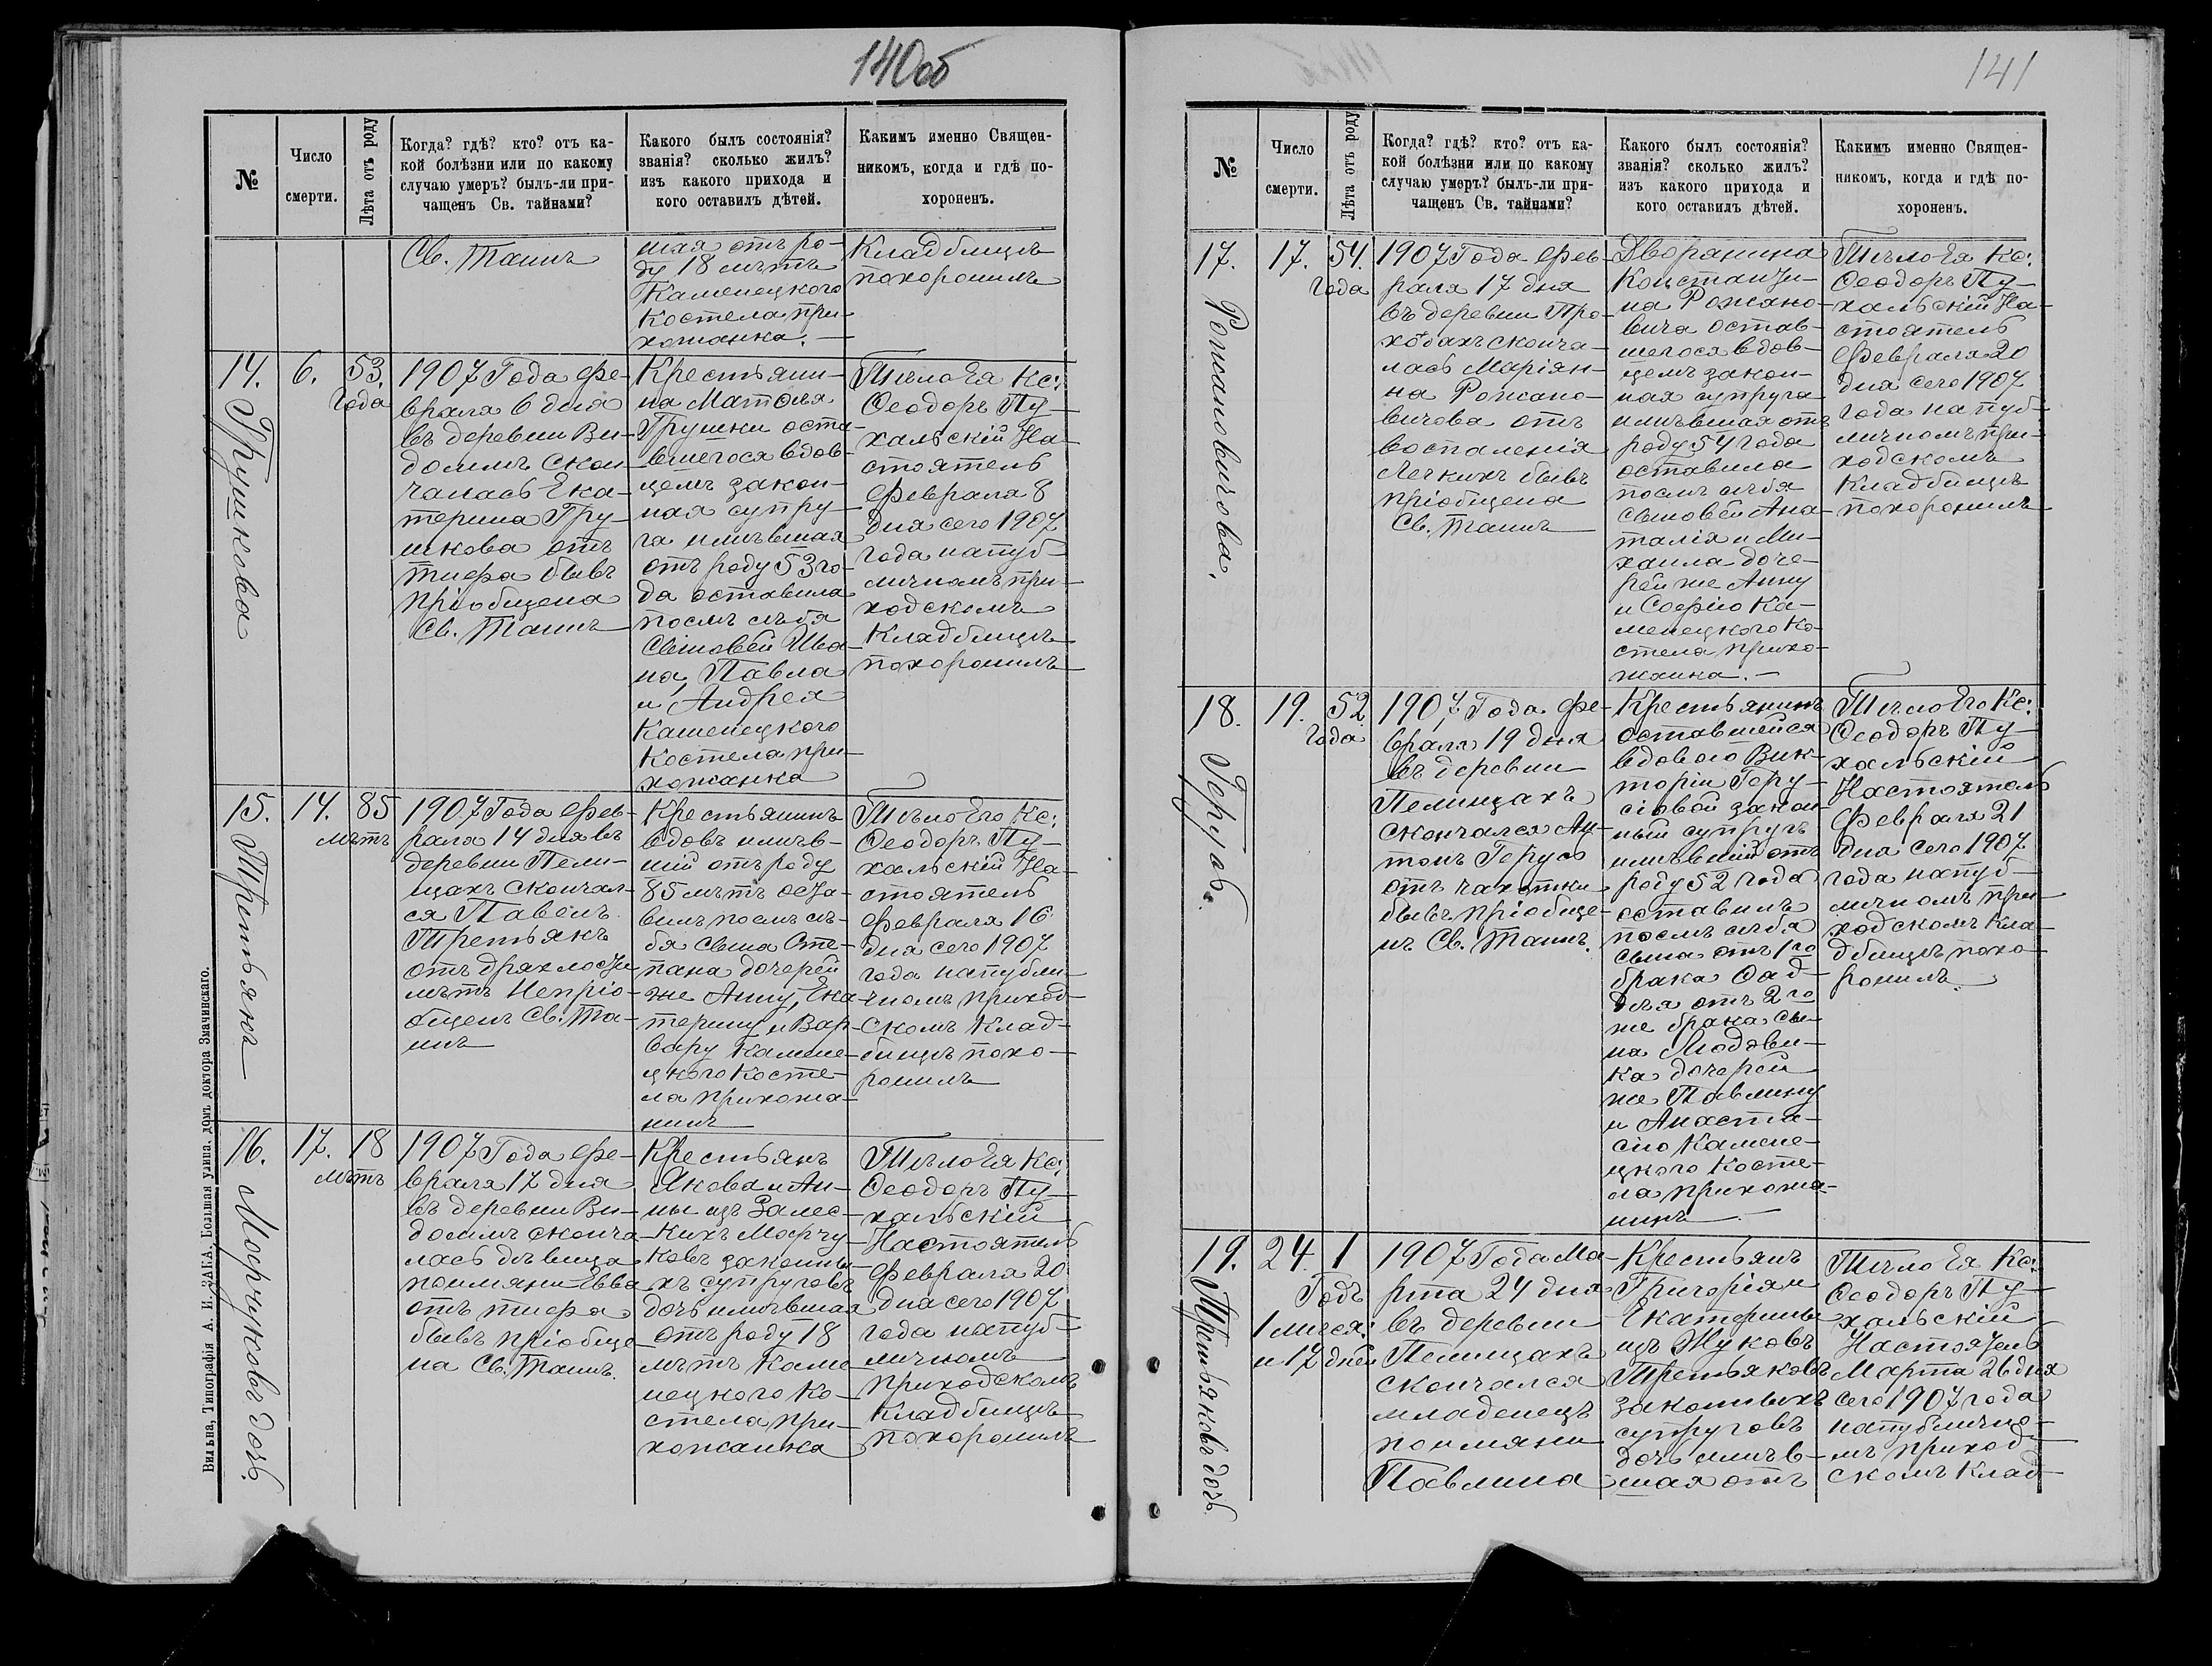 140об
№
Число
смерти.
Лѣта отъ роду
Когда? гдѣ? кто? отъ ка-
кой болѣзни или по какому
случаю умеръ? былъ-ли при-
чащенъ Св. тайнами?
Какого былъ состоянія?
званія? сколько жилъ?
изъ какого прихода и
кого оставилъ дѣтей.
Какимъ именно Священ-
никомъ, когда и гдѣ по-
хороненъ.
Св. Таинъ
шая отъ ро-
ду 18 лѣтъ
Каменецкого
Костела при-
хожанка. —
Кладбищѣ
похоронилъ
14.
Грушкова
6.
53.
Года
1907 Года Фе-
враля 6 дня
въ деревни Ви-
домлѣ Скон-
чалась Ека-
терина Гру-
шкова отъ
тифа бывъ
пріобщена
Св. Таинъ
Крестьяни-
на Матѳея
Грушки оста-
вшегося вдов-
цемъ закон-
ная супру-
га имѣвшая
отъ роду 53 го-
да оставила
послѣ сѣбя
Сыновей Ива-
на, Павла
и Андрея
Каменецкого
Костела при-
хожанка
Тѣло Ея Кс:
Ѳеодоръ Пу-
хальскій На-
стоятель
Февраля 8
дня сего 1907
года на пуб-
личномъ при-
ходскомъ
Кладбищѣ
похоронилъ
15.
Третьякъ
14.
85
лѣтъ
1907 Года Фев-
раля 14 дня въ
деревни Пели-
щахъ Скончал-
ся Павелъ
Третьякъ
отъ дряхлости
лѣтъ Непріо-
бщенъ Св. Та-
инъ
Крестьянинъ
вдовъ имѣв-
ший отъ роду
85 лѣтъ оста-
вилъ послѣ сѣ-
бя сына Сте-
пана дочерей
же Анну, Ека-
терину и Вар-
вару Камене-
цкого Косте-
ла прихожа-
нинъ
Тѣло Его Кс:
Ѳеодоръ Пу-
хальскій На-
стоятель
Февраля 16
дня сего 1907
года на публи-
чномъ приход-
скомъ Клад-
бищѣ похо-
ронилъ
16.
Морчуковъ дочь.
17.
18
лѣтъ
1907 Года Фе-
враля 17 дня
въ деревни Ви-
домлѣ сконча-
лась дѣвица
поимяни Евва
отъ тифа
бывъ пріобще-
на Св. Таинъ.
Крестьянъ
Якова и Ан-
ны изъ Залес-
кихъ Морчу-
ковъ законны-
хъ супруговъ
дочь имѣвшая
отъ роду 18
лѣтъ Каме-
нецкого Ко-
стела при-
хожанка
Тѣло Ея Кс:
Ѳеодоръ Пу-
хальскій
Настоятель
Февраля 20
дня сего 1907
года на пуб-
личномъ
приходскомъ
Кладбищѣ
похоронилъ
Вильна, Типографія А. И. ЗАКА, Большая улица, домъ доктора Змачинскаго.
141
№
Число
смерти.
Лѣта отъ роду
Когда? гдѣ? кто? отъ ка-
кой болѣзни или по какому
случаю умеръ? былъ-ли при-
чащенъ Св. тайнами?
Какого былъ состоянія?
званія? сколько жилъ?
изъ какого прихода и
кого оставилъ дѣтей.
Какимъ именно Священ-
никомъ, когда и гдѣ по-
хороненъ.
17.
Рожановичова.
17.
54.
Года
1907 Года Фев-
раля 17 дня
въ деревни Про-
ходахъ сконча-
лась Маріян-
на Рожано-
вичова отъ
воспаленія
Легкихъ бывъ
пріобщена
Св. Таинъ
Дворянина
Константи-
на Рожано-
вича остав-
шегося вдов-
цемъ закон-
ная супруга
имѣвшая отъ
роду 54 года
оставила
послѣ сѣбя
сыновей Ана-
талія и Ми-
хаила доче-
рей же Анну
и Софію Ка-
менецкого Ко-
стела прихо-
жанка. —
Тѣло Ея Кс:
Ѳеодоръ Пу-
хальскій На-
стоятель
Февраля 20
дня сего 1907
года на пуб-
личномъ при-
ходскомъ
Кладбищѣ
похоронилъ
18.
Герусъ.
19.
52
Года
1907 Года Фе-
враля 19 дня
въ деревни
Пелищахъ
скончался Ан-
тонъ Герусъ
отъ чахотки
бывъ пріобще-
нъ Св. Таинъ.
Крестьянинъ
оставшейся
вдовою Вик-
торіи Геру-
сіовой закон-
ный супругъ
имѣвшій отъ
роду 52 года
оставилъ
послѣ сѣбя
сына отъ 1го
брака Фад-
дѣя отъ 2го
же брака сы-
на Людови-
ка дочерей
же Павлину
и Анаста-
сію Камене-
цкого Косте-
ла прихожа-
нинъ. —
Тѣло Его Кс:
Ѳеодоръ Пу-
хальскій
Настоятель
Февраля 21
дня сего 1907
года на пуб-
личномъ при-
ходскомъ Кла-
дбищѣ похо-
ронилъ.
19.
Третьяковъ дочь.
24.
1
Годъ
1 мѣсяц.
и 17 дней
1907 Года Ма-
рта 24 дня
въ деревни
Пелищахъ
скончался
младенецъ
поимяни
Павлина
Крестьянъ
Григорія и
Екатерины
изъ Жуковъ
Третьяковъ
законныхъ
супруговъ
дочь имѣв-
шая отъ
Тѣло Ея Кс:
Ѳеодоръ Пу-
хальскій
Настоятель
Марта 26 дня
сего 1907 года
на публично-
мъ приход-
скомъ Клад-